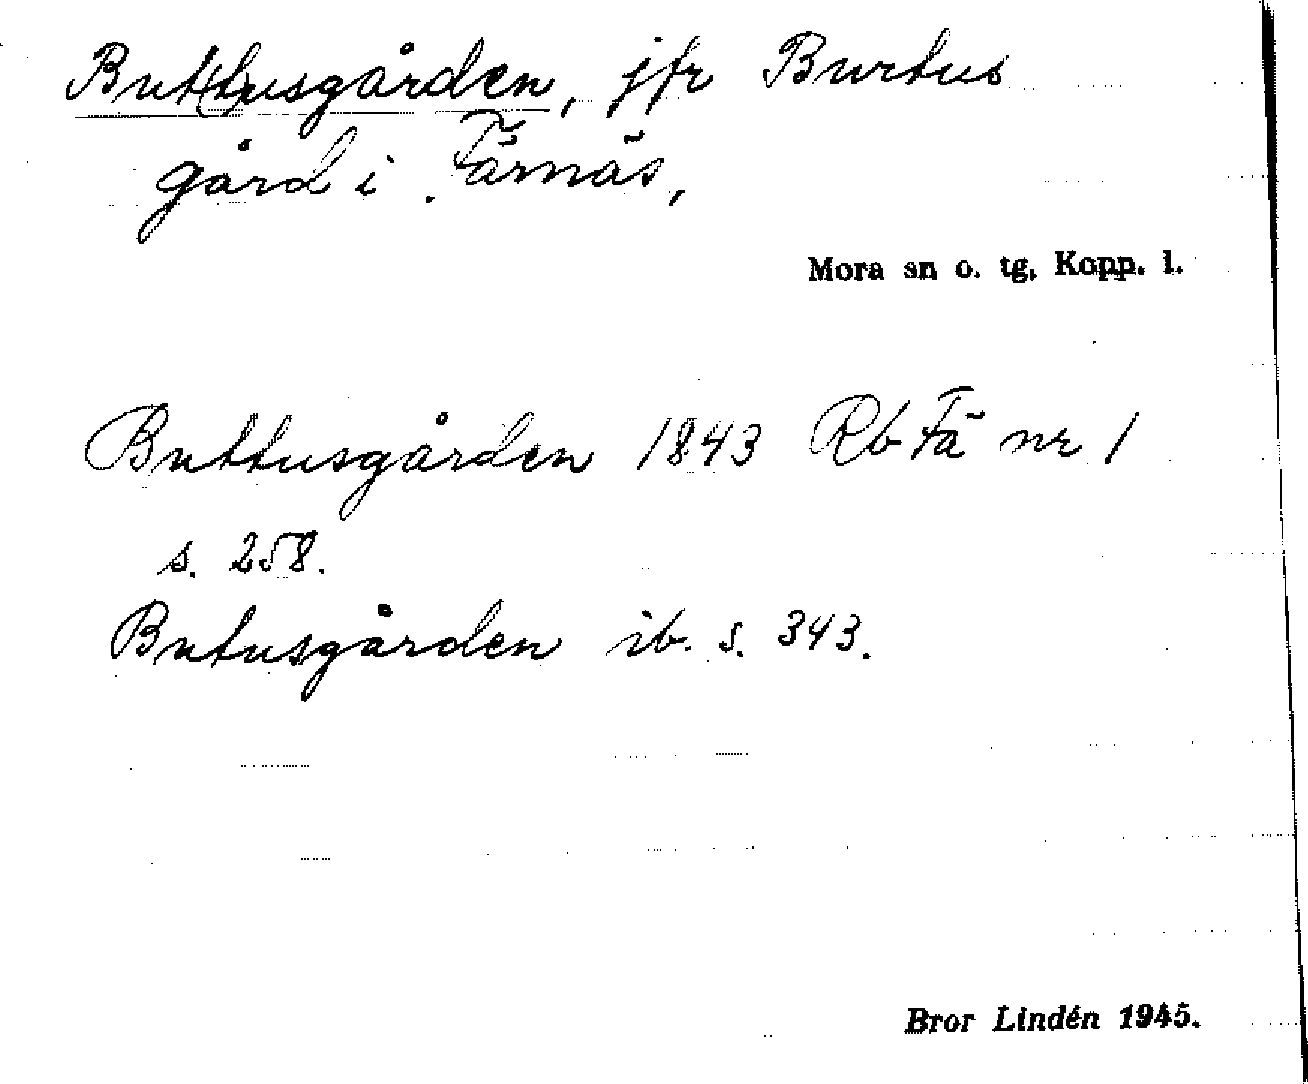 But(t)usgården, jfr Burtus
gård i Färnäs,
Mora sn o. tg, Kopp. l.
Buttusgården 1843 Rb Fä nr 1
s. 258.
Butusgården ib. s. 343.
Bror Lindén 1945.